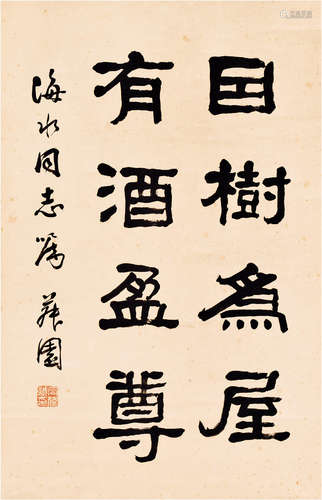 囙樹為屋
有酒盈尊
海水同志嘱 園